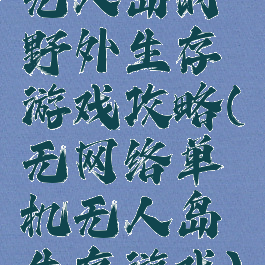 无人岛的
野外生存
游戏攻略(
无网络单
机无人岛
生存游戏)